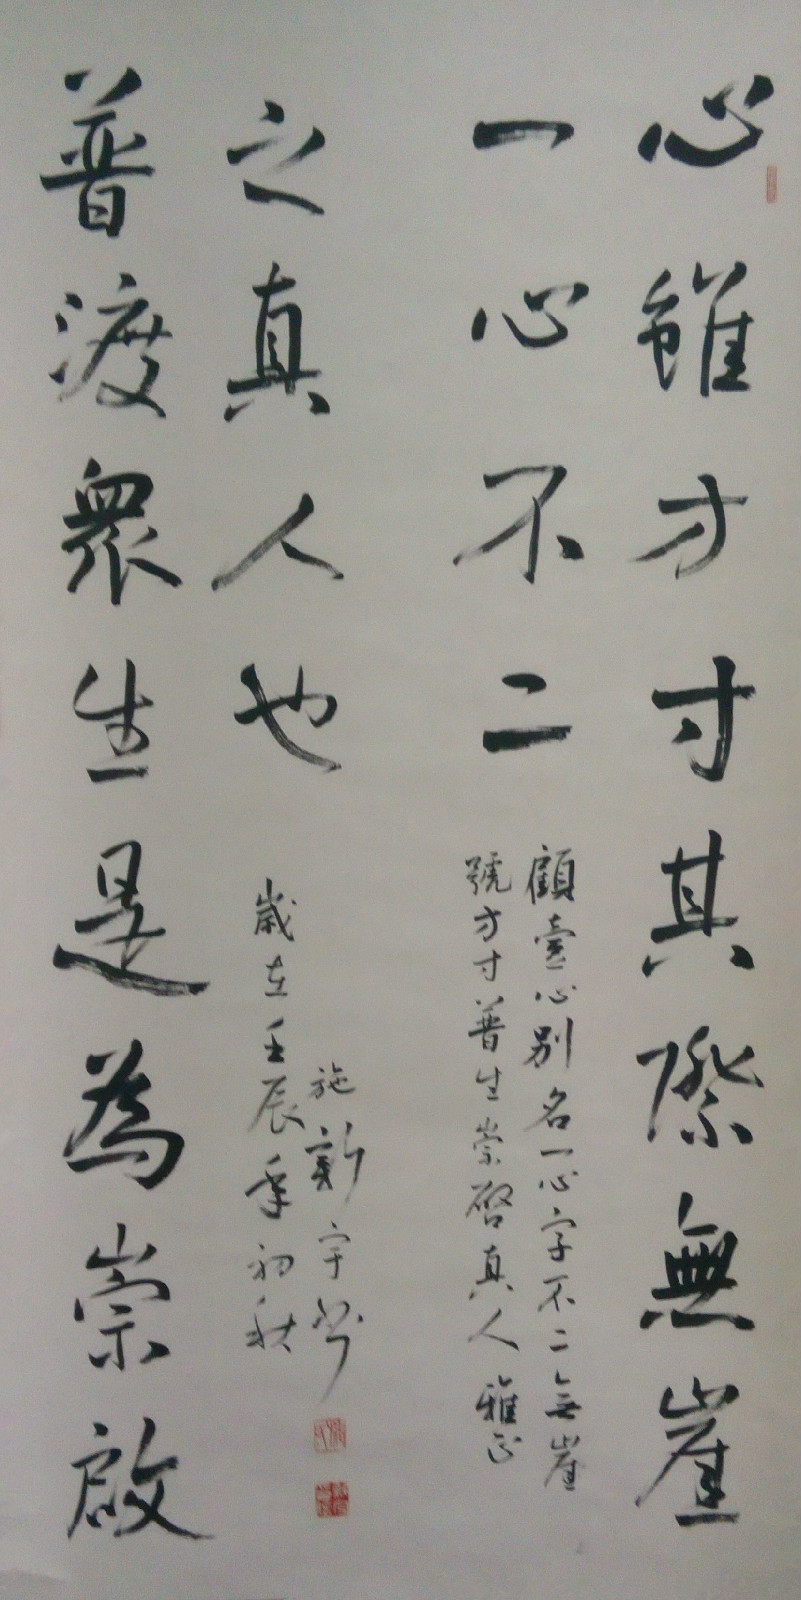 心雖方寸其際無崖
一心不二
顧壹心別名一心字不二無崖
號方寸普生崇啓真人雅正
普渡眾生是為崇啟
之真人也
歲在壬辰年初秋
施新宇書